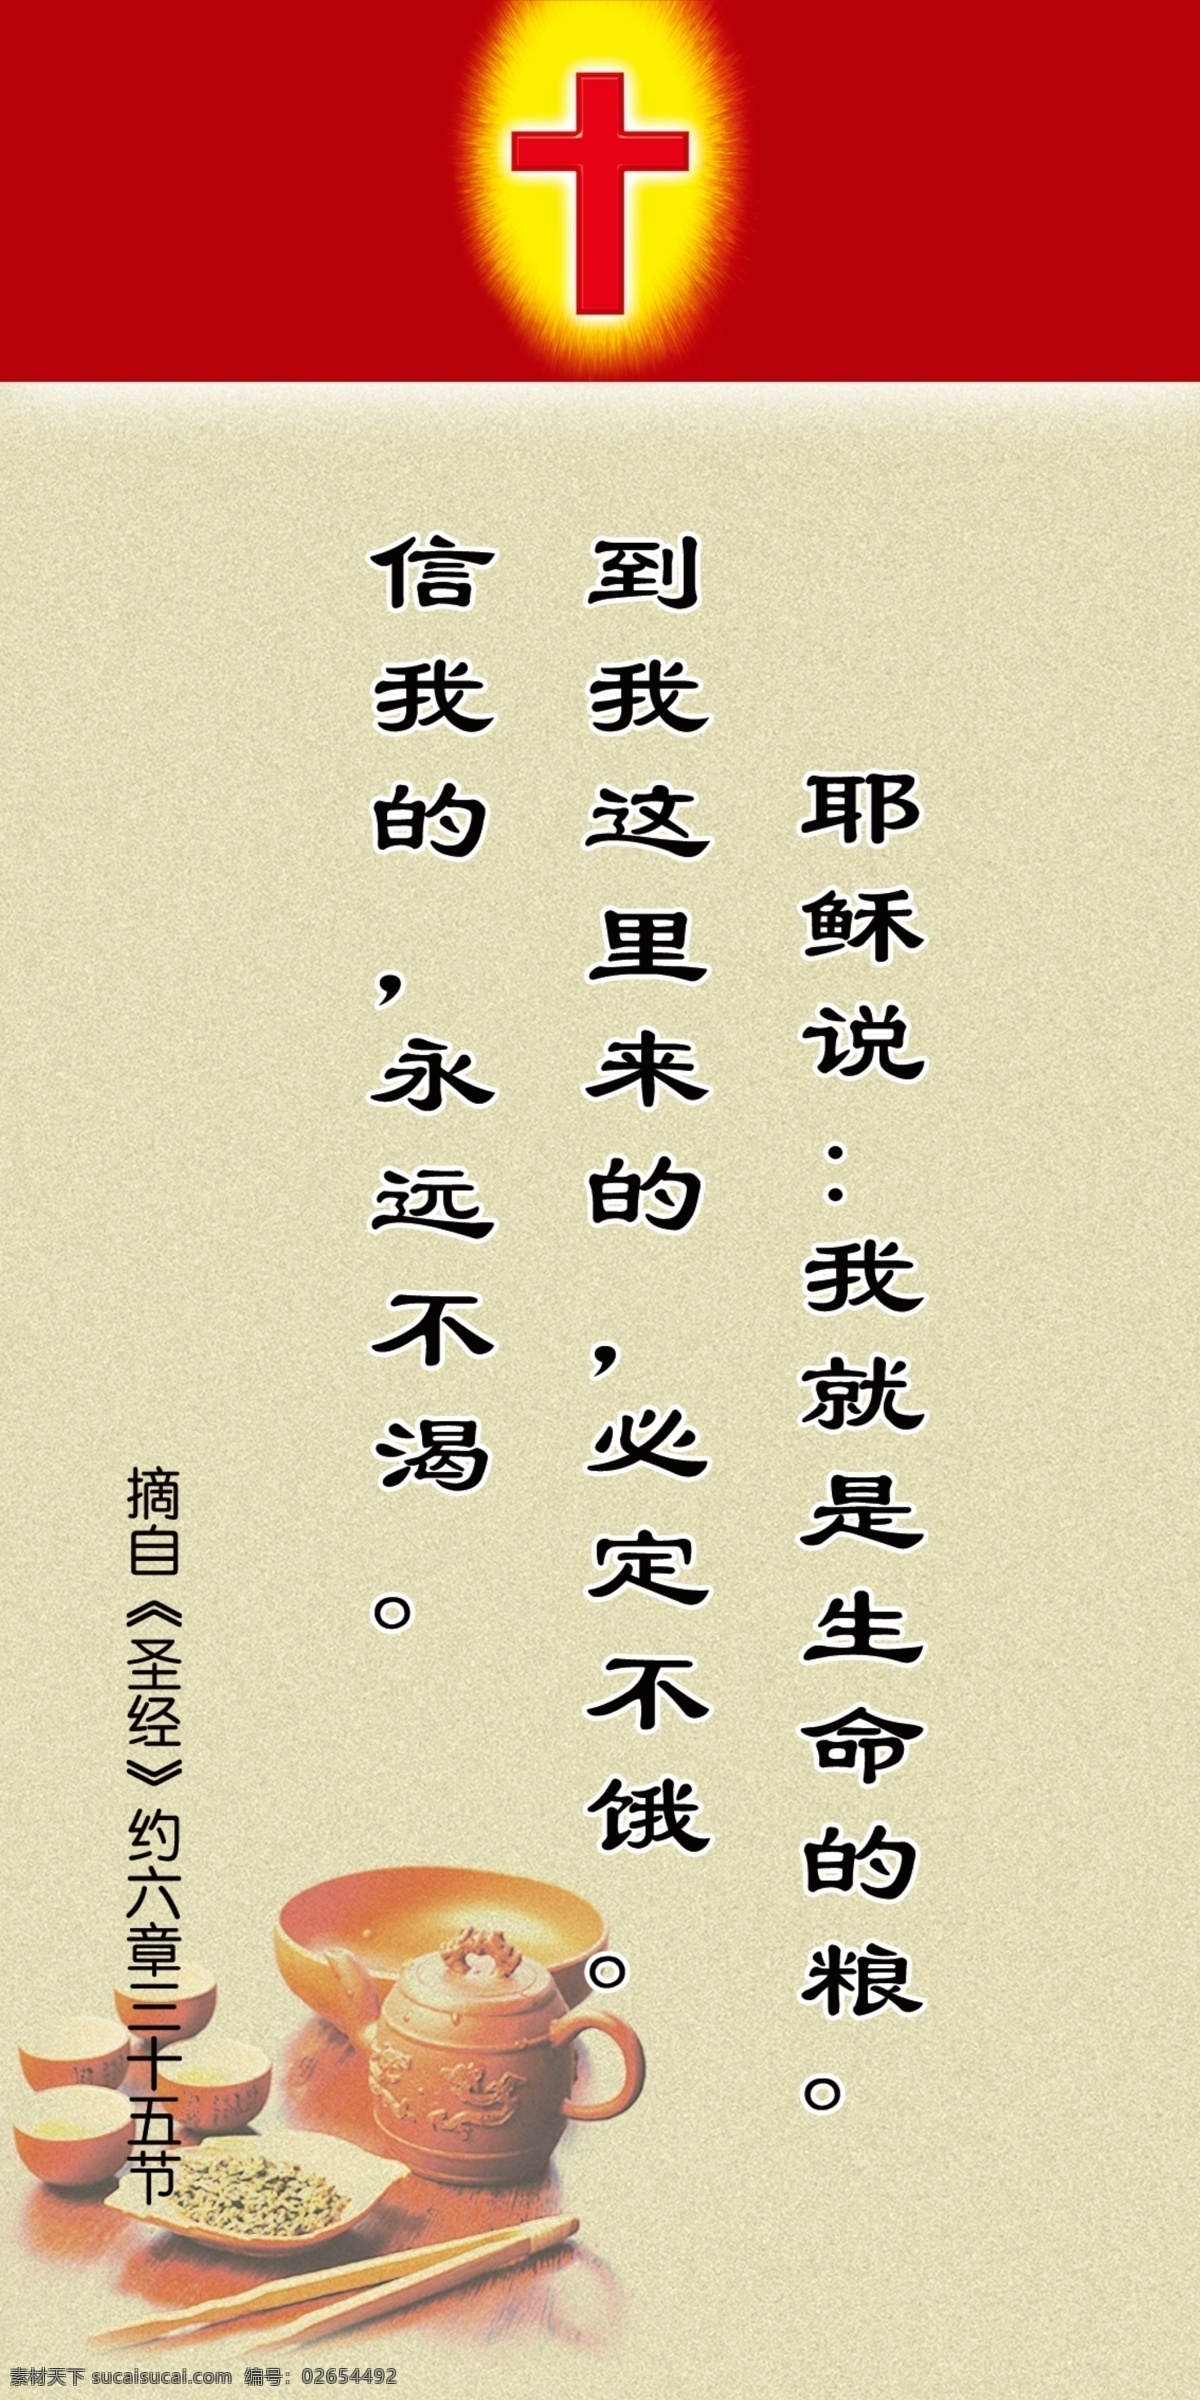 耶稣说:我就是生命的粮。
到我这里来的,必定不饿。
信我的,永远不渴。
摘自《圣经》约六章三十五节
素材天下 sucaisucai.com 编号: 02654492